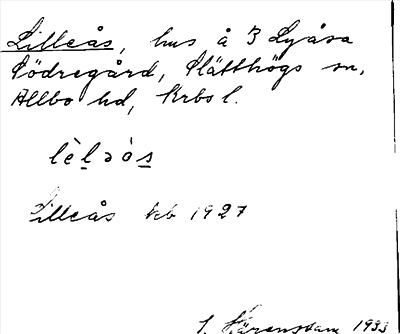 Lilleås, hus å 3 Lyåsa
Södregård, Slätthögs sn,
Allbo hd, Krbs l.
lèl̠əòs̠
Lilleås kb 1927
Härenstam 1933